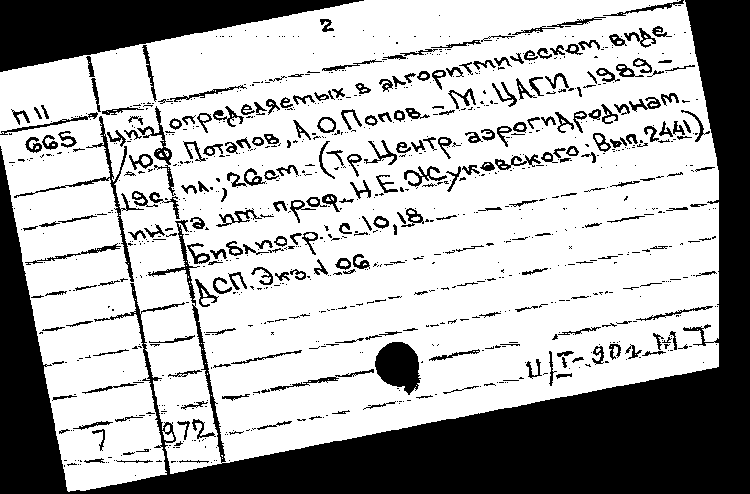 2
П 11
665
ций, определяемых в алгоритмическом виде
/ Ю.Ф. Потапов, А.О. Попов. - М.: ЦАГИ, 1989. -
19с. ил.; 26см. - (Тр. Центр. аэрогидродинам.
ин-та им. проф. Н.Е. Жуковского; Вып. 2441)
Библиогр.: с. 10, 18.
ДСП. Экз. N 06
11/I-90г. М.Т.
7 972